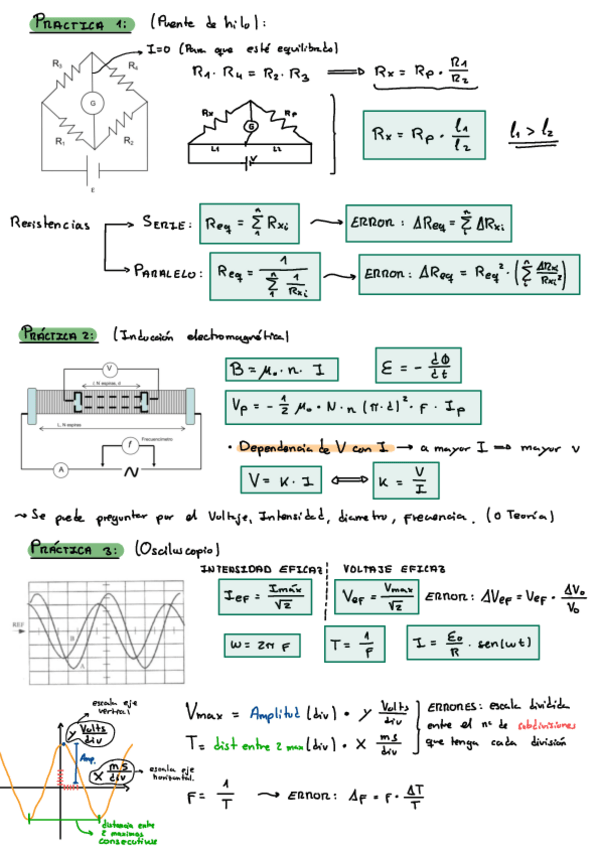 PRÁCTICA 1: (Puente de hilo):
I=0 (Para que esté equilibrado)
R₃ R₄
G
R₁ R₂
E
R₁ · R₄ = R₂ · R₃ ⟹ Rx = Rp · R₁/R₂
Rx Rp
G
L1 L2
V
Rx = Rp · l₁/l₂
l₁ > l₂
Resistencias → SERIE: Req = Σ₁ⁿ Rxi → ERROR: ΔReq = Σᵢⁿ ΔRxi
→ PARALELO: Req = 1/(Σ₁ⁿ 1/Rxi) → ERROR: ΔReq = Req² · (Σᵢⁿ ΔRxi/Rxi²)
PRÁCTICA 2: (Inducción electromagnética)
V
l, N espiras, d
L, N espiras
Frecuencímetro
f
A
B = μ₀ · n · I
Ɛ = - dΦ/dt
Vp = - 1/2 μ₀ · N · n (π·d)² · F · Ip
· Dependencia de V con I → a mayor I ⟹ mayor V
V = K · I ⟺ K = V/I
→ Se puede preguntar por el Voltaje, Intensidad, diametro, Frecuencia. (O Teoría)
PRÁCTICA 3: (Osciloscopio)
INTENSIDAD EFICAZ
VOLTAJE EFICAZ
REF
B
A
IEF = Imáx/√2
VEF = Vmax/√2
ERROR: ΔVEF = VEF · ΔV₀/V₀
W = 2π F
T = 1/F
I = E₀/R · sen(wt)
escala eje
vertical
y Volts/div
Amp.
x ms/div
escala eje
horizontal.
distancia entre
2 maximos
consecutivos
Vmax = Amplitud (div) · y Volts/div
T = dist entre 2 max (div) · X ms/div
ERRORES: escala dividida
entre el nº de subdivisiones
que tenga cada división
F = 1/T → ERROR: ΔF = F · ΔT/T